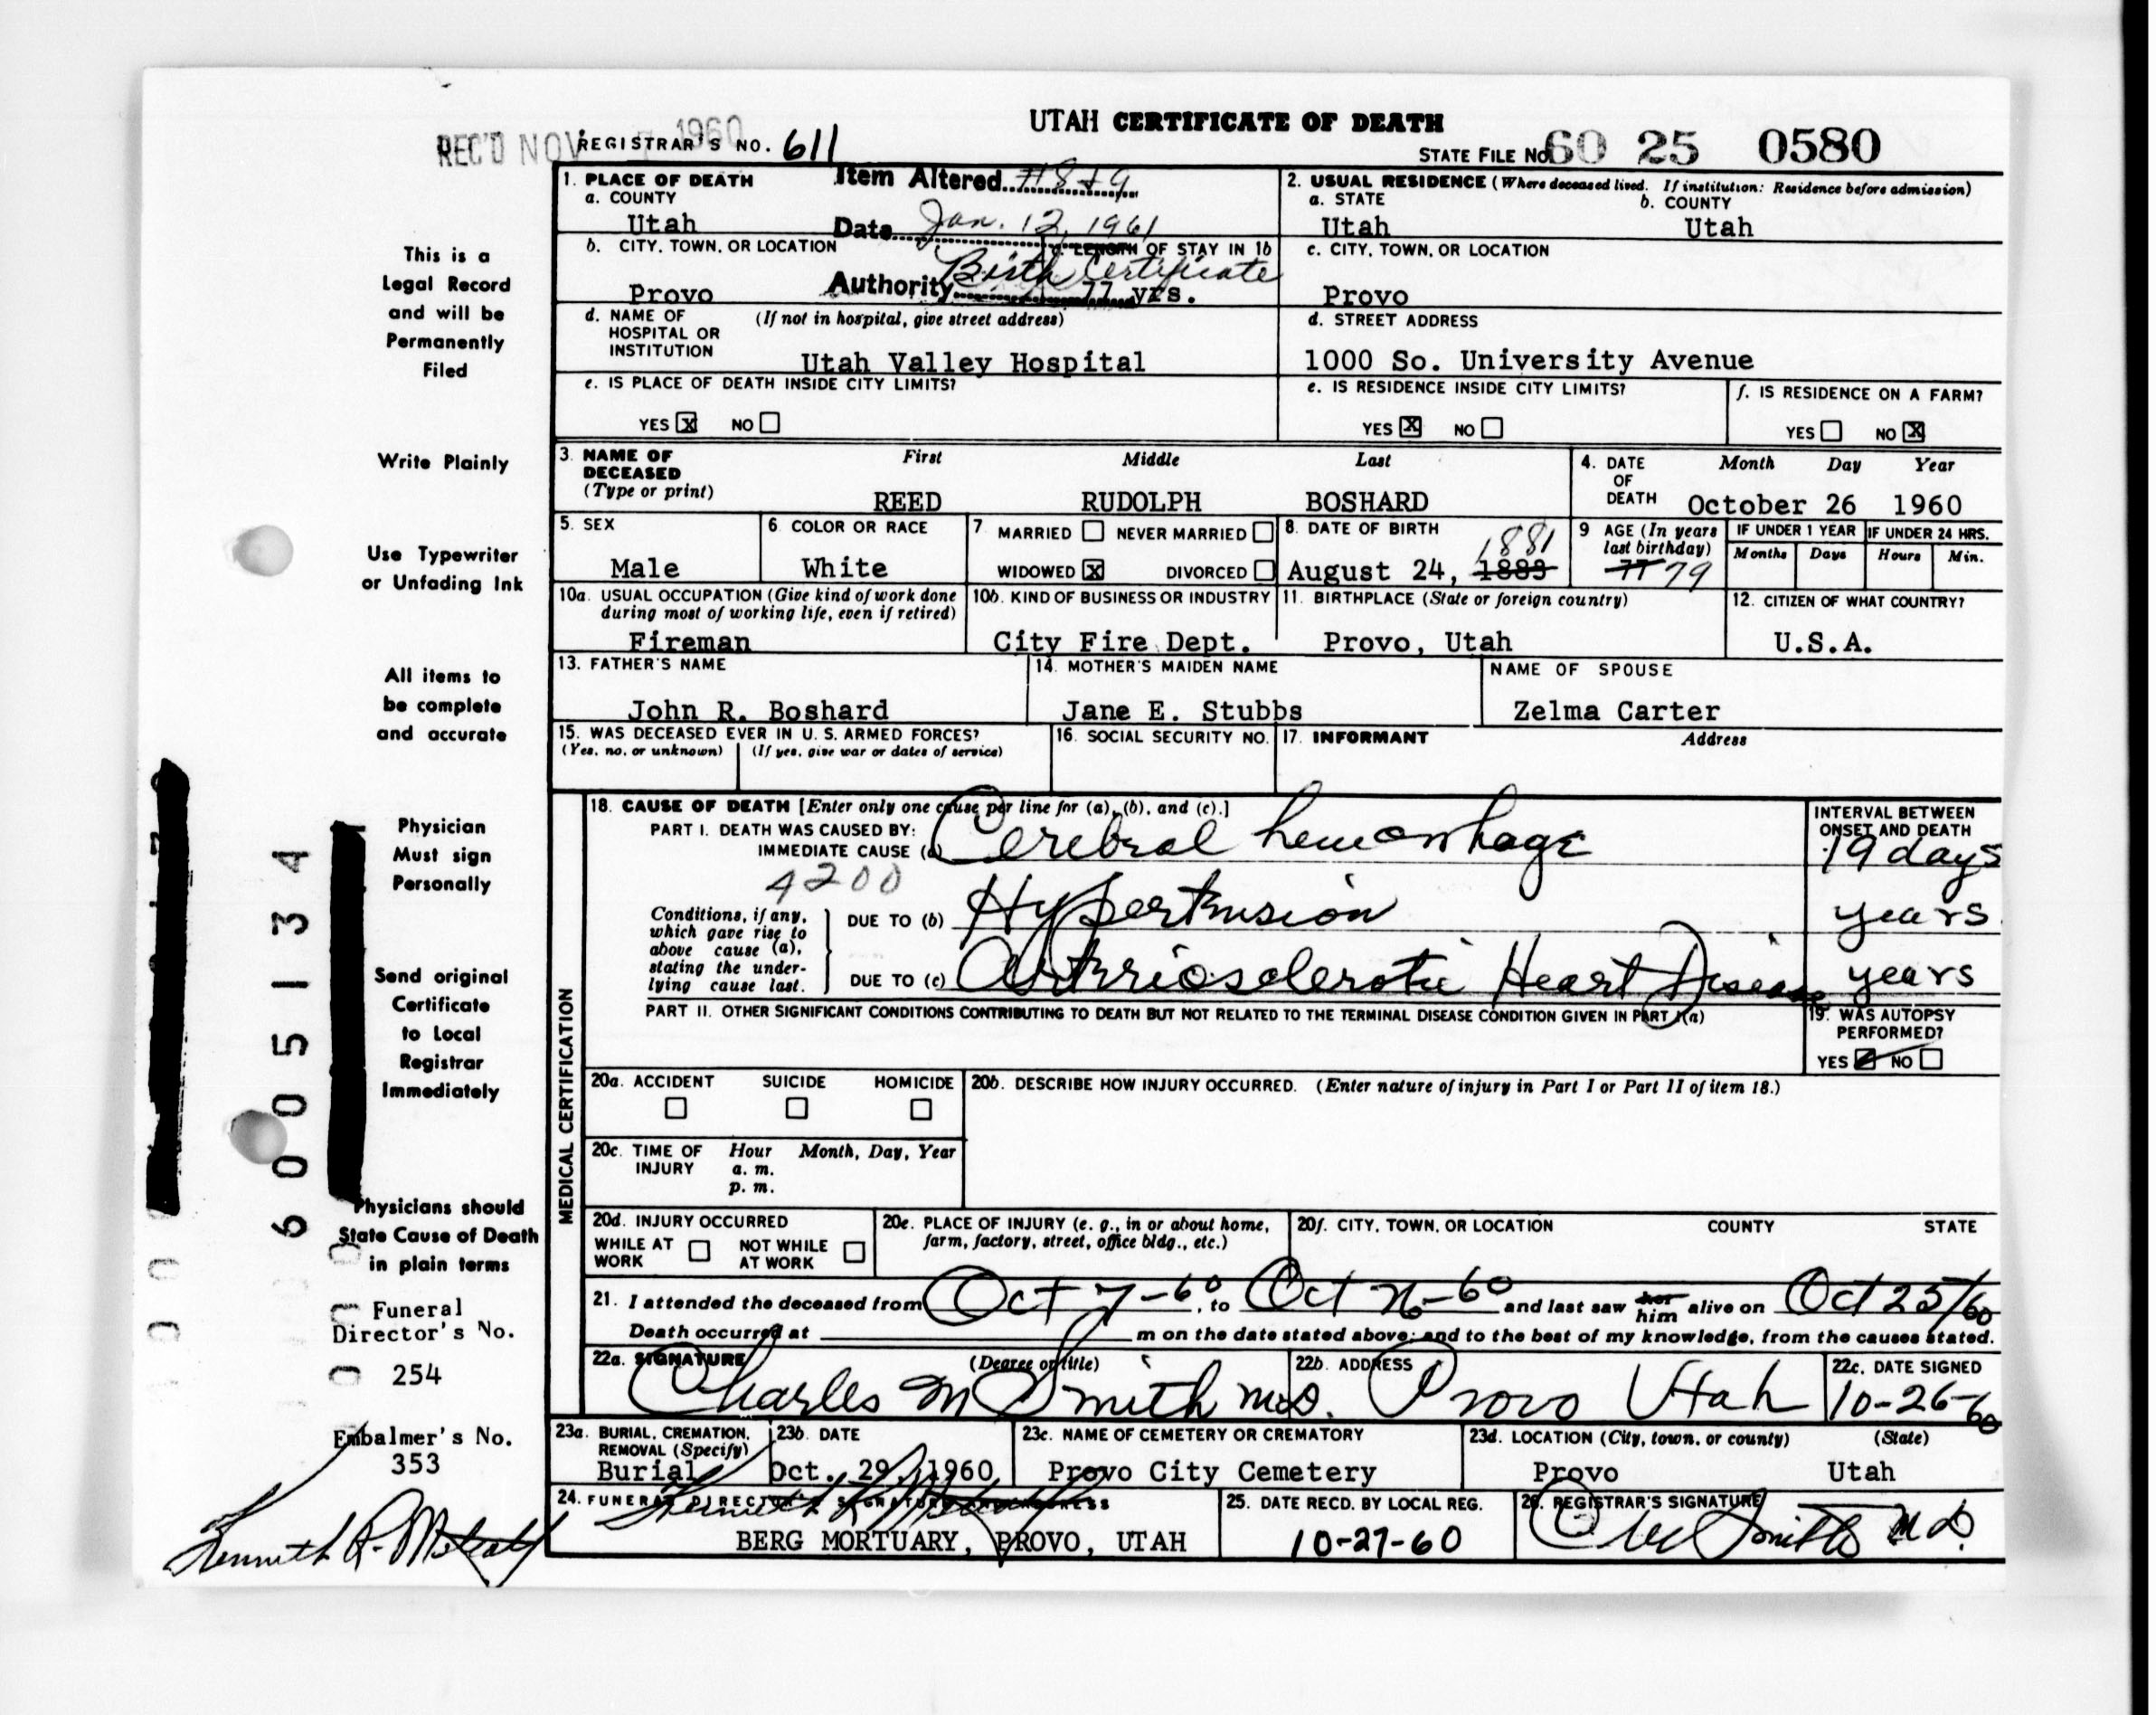 UTAH CERTIFICATE OF DEATH
REC'D NOV 1960
REGISTRAR'S NO. 611
STATE FILE NO. 60 25 0580
Item Altered #8 & 9
Date Jan. 12, 1961
Authority Birth Certificate
1. PLACE OF DEATH
a. COUNTY
Utah
b. CITY, TOWN, OR LOCATION
Provo
c. LENGTH OF STAY IN 1b
77 yrs.
d. NAME OF HOSPITAL OR INSTITUTION (If not in hospital, give street address)
Utah Valley Hospital
e. IS PLACE OF DEATH INSIDE CITY LIMITS?
YES X NO
2. USUAL RESIDENCE (Where deceased lived. If institution: Residence before admission)
a. STATE
Utah
b. COUNTY
Utah
c. CITY, TOWN, OR LOCATION
Provo
d. STREET ADDRESS
1000 So. University Avenue
e. IS RESIDENCE INSIDE CITY LIMITS?
YES X NO
f. IS RESIDENCE ON A FARM?
YES NO X
3. NAME OF DECEASED (Type or print)
First Middle Last
REED RUDOLPH BOSHARD
4. DATE OF DEATH
Month Day Year
October 26 1960
5. SEX
Male
6. COLOR OR RACE
White
7 MARRIED NEVER MARRIED
WIDOWED X DIVORCED
8. DATE OF BIRTH
August 24, 1883 1881
9 AGE (In years last birthday)
77 79
IF UNDER 1 YEAR
Months Days
IF UNDER 24 HRS.
Hours Min.
10a. USUAL OCCUPATION (Give kind of work done during most of working life, even if retired)
Fireman
10b. KIND OF BUSINESS OR INDUSTRY
City Fire Dept.
11. BIRTHPLACE (State or foreign country)
Provo, Utah
12. CITIZEN OF WHAT COUNTRY?
U.S.A.
13. FATHER'S NAME
John R. Boshard
14. MOTHER'S MAIDEN NAME
Jane E. Stubbs
NAME OF SPOUSE
Zelma Carter
15. WAS DECEASED EVER IN U. S. ARMED FORCES?
(Yes, no, or unknown) (If yes, give war or dates of service)
16. SOCIAL SECURITY NO.
17. INFORMANT Address
MEDICAL CERTIFICATION
18. CAUSE OF DEATH [Enter only one cause per line for (a), (b), and (c).]
PART I. DEATH WAS CAUSED BY:
IMMEDIATE CAUSE (a) Cerebral hemorrhage
4200
Conditions, if any, which gave rise to above cause (a), stating the underlying cause last.
DUE TO (b) Hypertension
DUE TO (c) Arteriosclerotic Heart Disease
INTERVAL BETWEEN ONSET AND DEATH
19 days
years
years
PART II. OTHER SIGNIFICANT CONDITIONS CONTRIBUTING TO DEATH BUT NOT RELATED TO THE TERMINAL DISEASE CONDITION GIVEN IN PART I(a)
19. WAS AUTOPSY PERFORMED?
YES NO
20a. ACCIDENT SUICIDE HOMICIDE
20b. DESCRIBE HOW INJURY OCCURRED. (Enter nature of injury in Part I or Part II of item 18.)
20c. TIME OF INJURY Hour Month, Day, Year
a. m.
p. m.
20d. INJURY OCCURRED
WHILE AT WORK NOT WHILE AT WORK
20e. PLACE OF INJURY (e. g., in or about home, farm, factory, street, office bldg., etc.)
20f. CITY, TOWN, OR LOCATION COUNTY STATE
21. I attended the deceased from Oct 7-60, to Oct 26-60 and last saw her him alive on Oct 25/60
Death occurred at m on the date stated above; and to the best of my knowledge, from the causes stated.
22a. SIGNATURE (Degree or title)
Charles M Smith M.D.
22b. ADDRESS
Provo Utah
22c. DATE SIGNED
10-26-60
23a. BURIAL, CREMATION, REMOVAL (Specify)
Burial
23b. DATE
Oct. 29, 1960
23c. NAME OF CEMETERY OR CREMATORY
Provo City Cemetery
23d. LOCATION (City, town, or county) (State)
Provo Utah
24. FUNERAL DIRECTOR'S SIGNATURE AND ADDRESS
BERG MORTUARY, PROVO, UTAH
25. DATE RECD. BY LOCAL REG.
10-27-60
26. REGISTRAR'S SIGNATURE
C M Smith M D.
This is a
Legal Record
and will be
Permanently
Filed
Write Plainly
Use Typewriter
or Unfading Ink
All items to
be complete
and accurate
Physician
Must sign
Personally
Send original
Certificate
to Local
Registrar
Immediately
Physicians should
State Cause of Death
in plain terms
Funeral
Director's No.
254
Embalmer's No.
353
Kenneth R. Metcalf
6005134